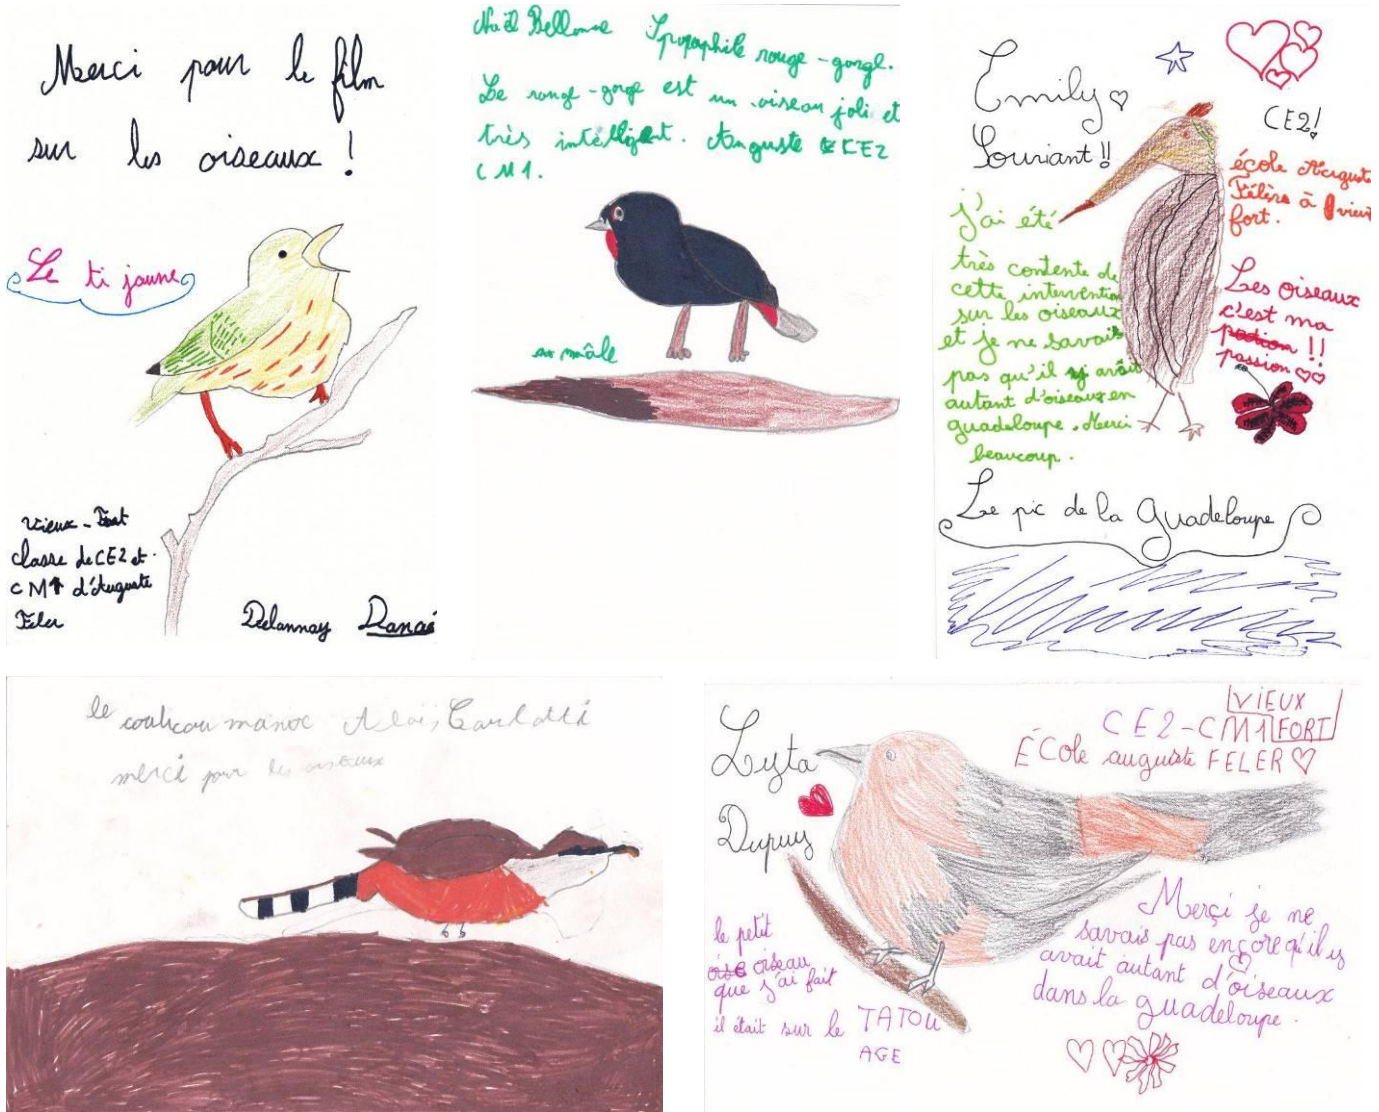 Merci pour le film
sur les oiseaux !
Le ti jaune
Vieux-Fort
classe de CE2 et
CM1 d'Auguste
Feler
Delannay Danaé
Noël Bellonne
rouge-gorge.
Le rouge-gorge est un oiseau joli et
très intelligent. Auguste CE2
CM1.
un mâle
Emily ♡
Souriant !!
CE2!
école Auguste
à vieux
fort.
j'ai été
très contente de
cette intervention
sur les oiseaux
et je ne savais
pas qu'il y avait
autant d'oiseaux en
guadeloupe. Merci
beaucoup.
Les oiseaux
c'est ma
!!
passion ♡♡
Le pic de la Guadeloupe
le manoc
merci pour les oiseaux
Lyta
Dupuy
VIEUX
CE2-CM1 FORT
ÉCole auguste FELER ♡
le petit
oise oiseau
que j'ai fait
il était sur le TATOU
AGE
Merçi je ne
savais pas encore qu'il y
avait autant d'oiseaux
dans la guadeloupe.